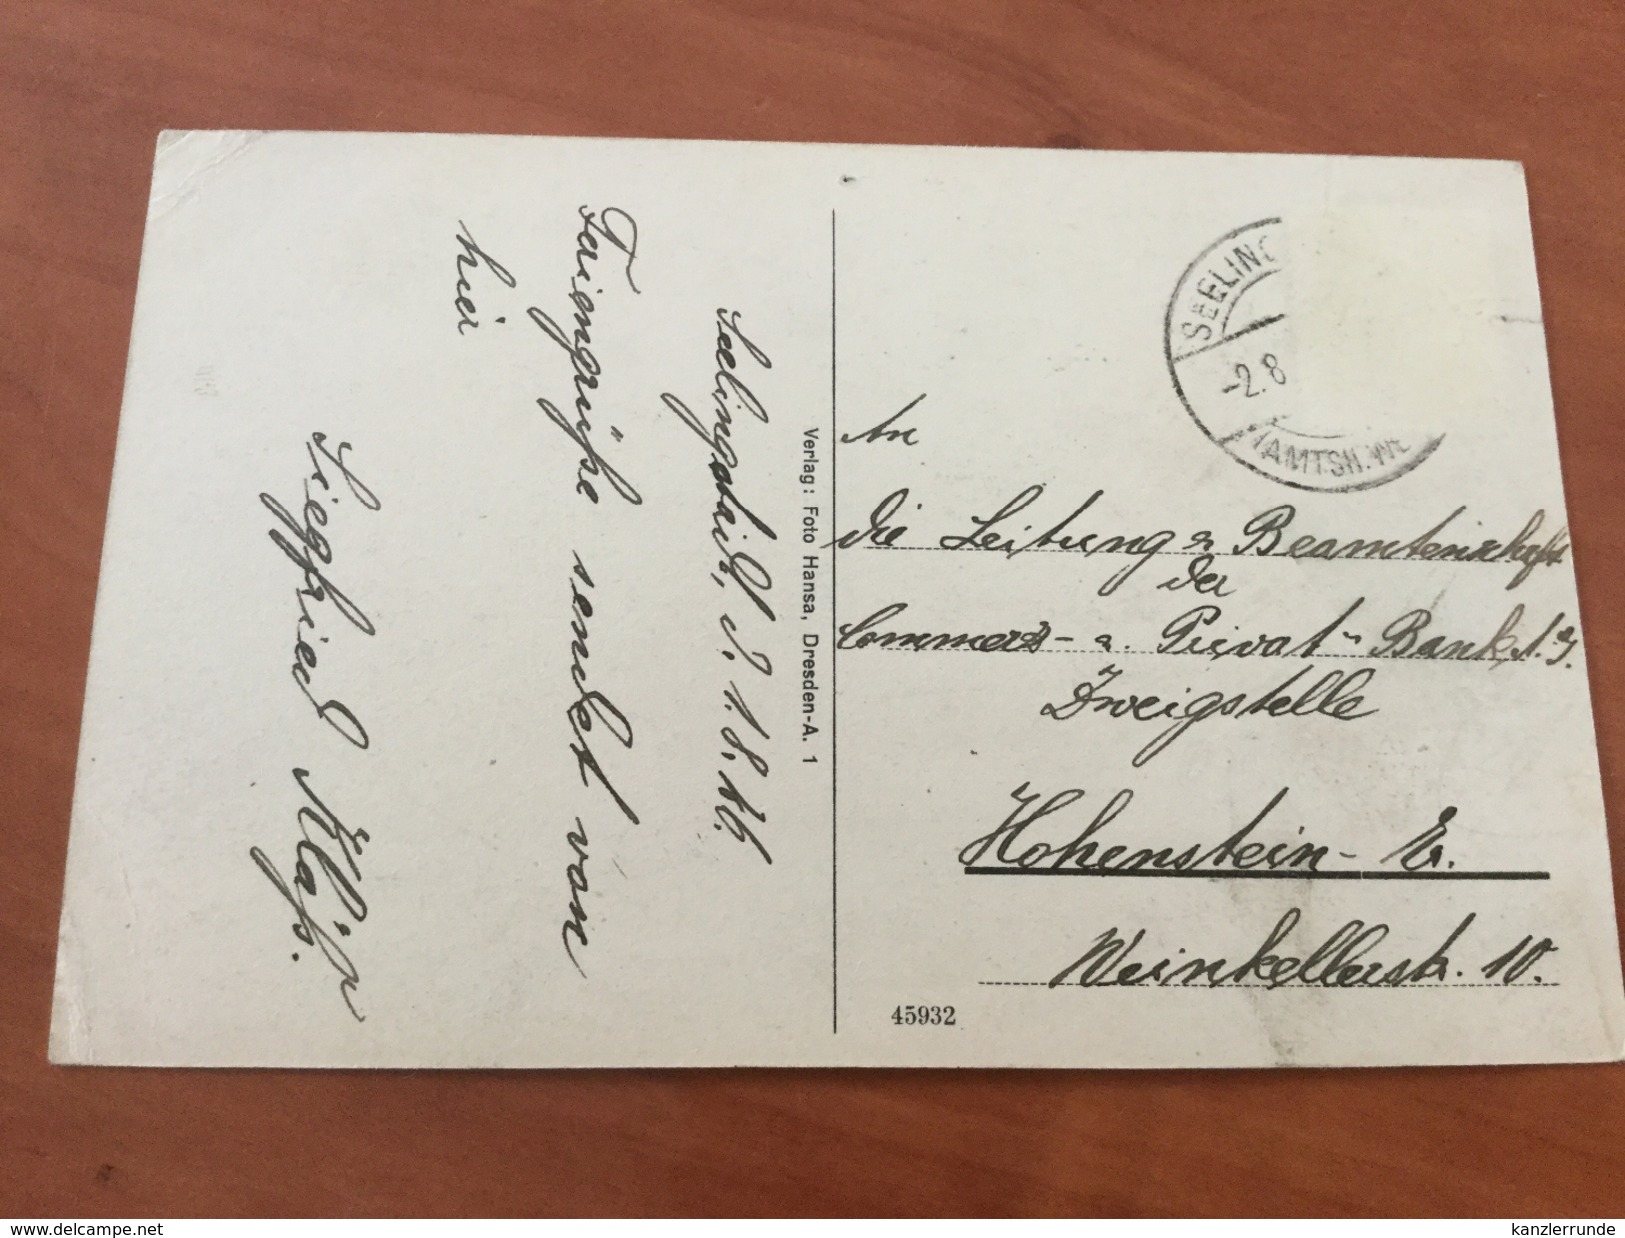 Seelingstädt, d. 1.8.
Feriengrüße sendet von
hier
Siegfried
Verlag: Foto Hansa, Dresden-A. 1
SEELING
-2.8
AMTSH.
An
die Leitung u. Beamtenschaft
der
Commerz- u. Privat-Bank A.G.
Zweigstelle
Hohenstein- Er.
Weinkellerstr. 10.
45932
www.delcampe.net
kanzlerrunde